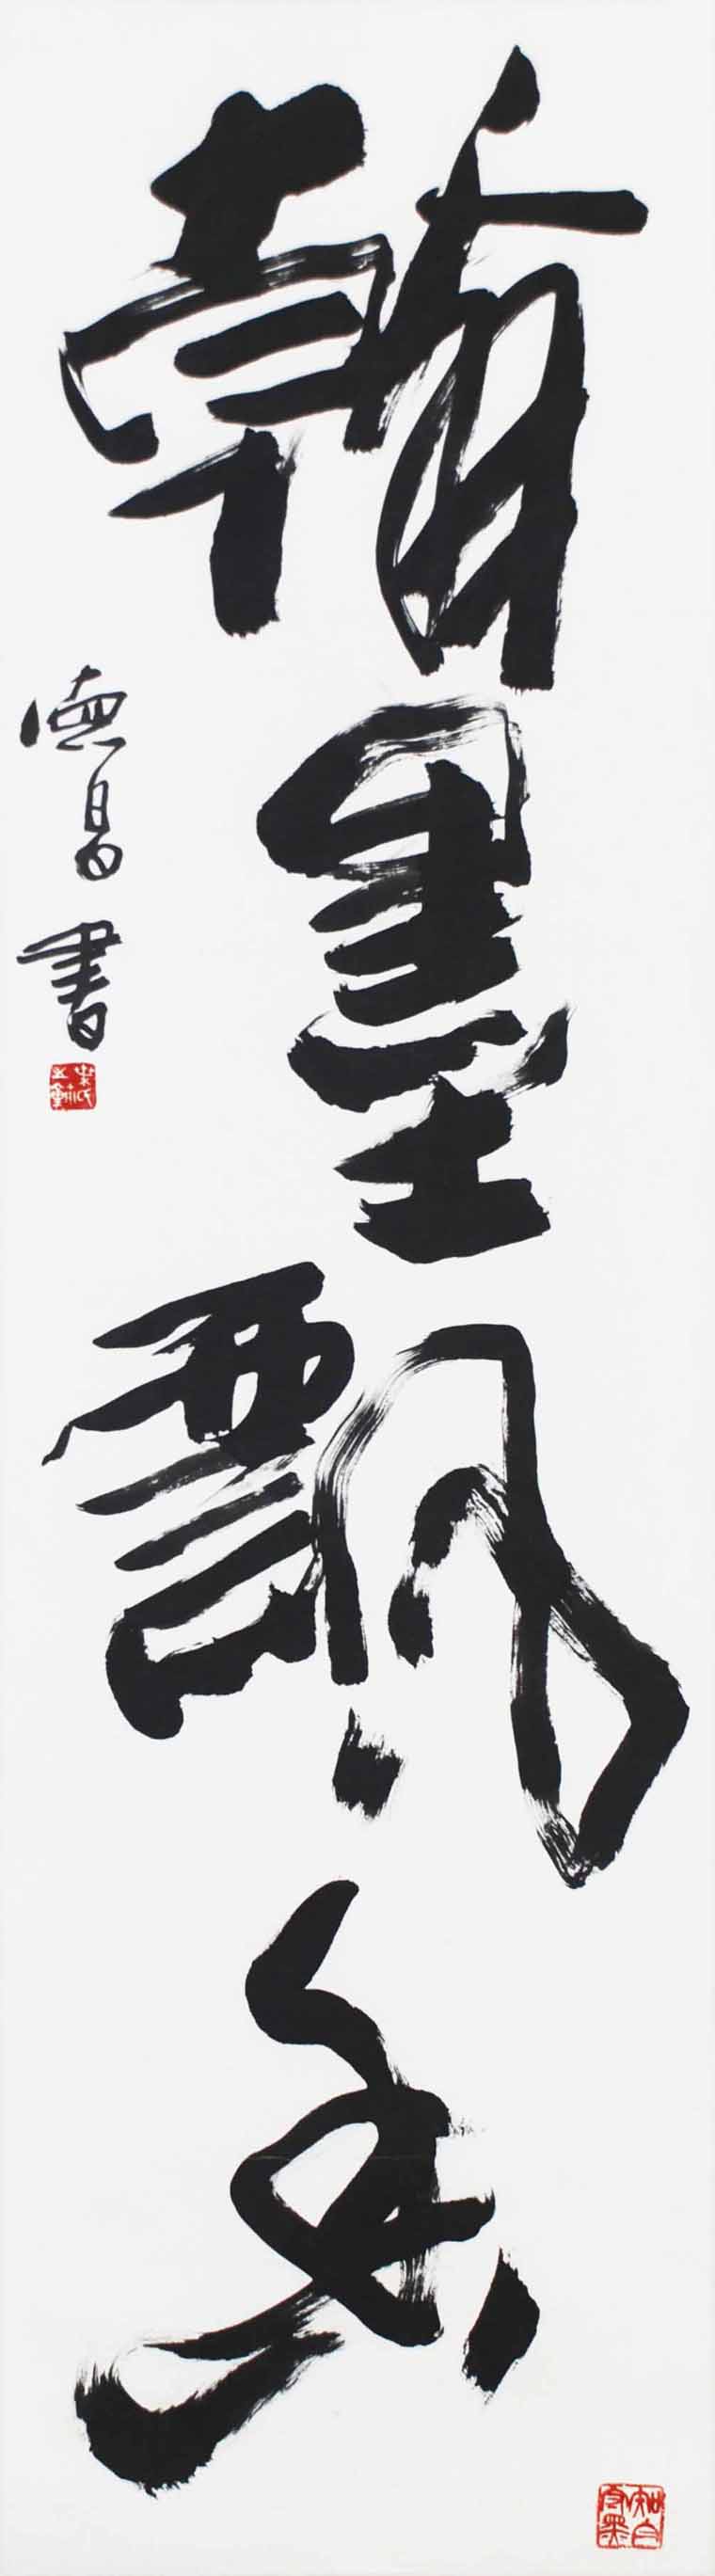 翰墨飄香
德昌書